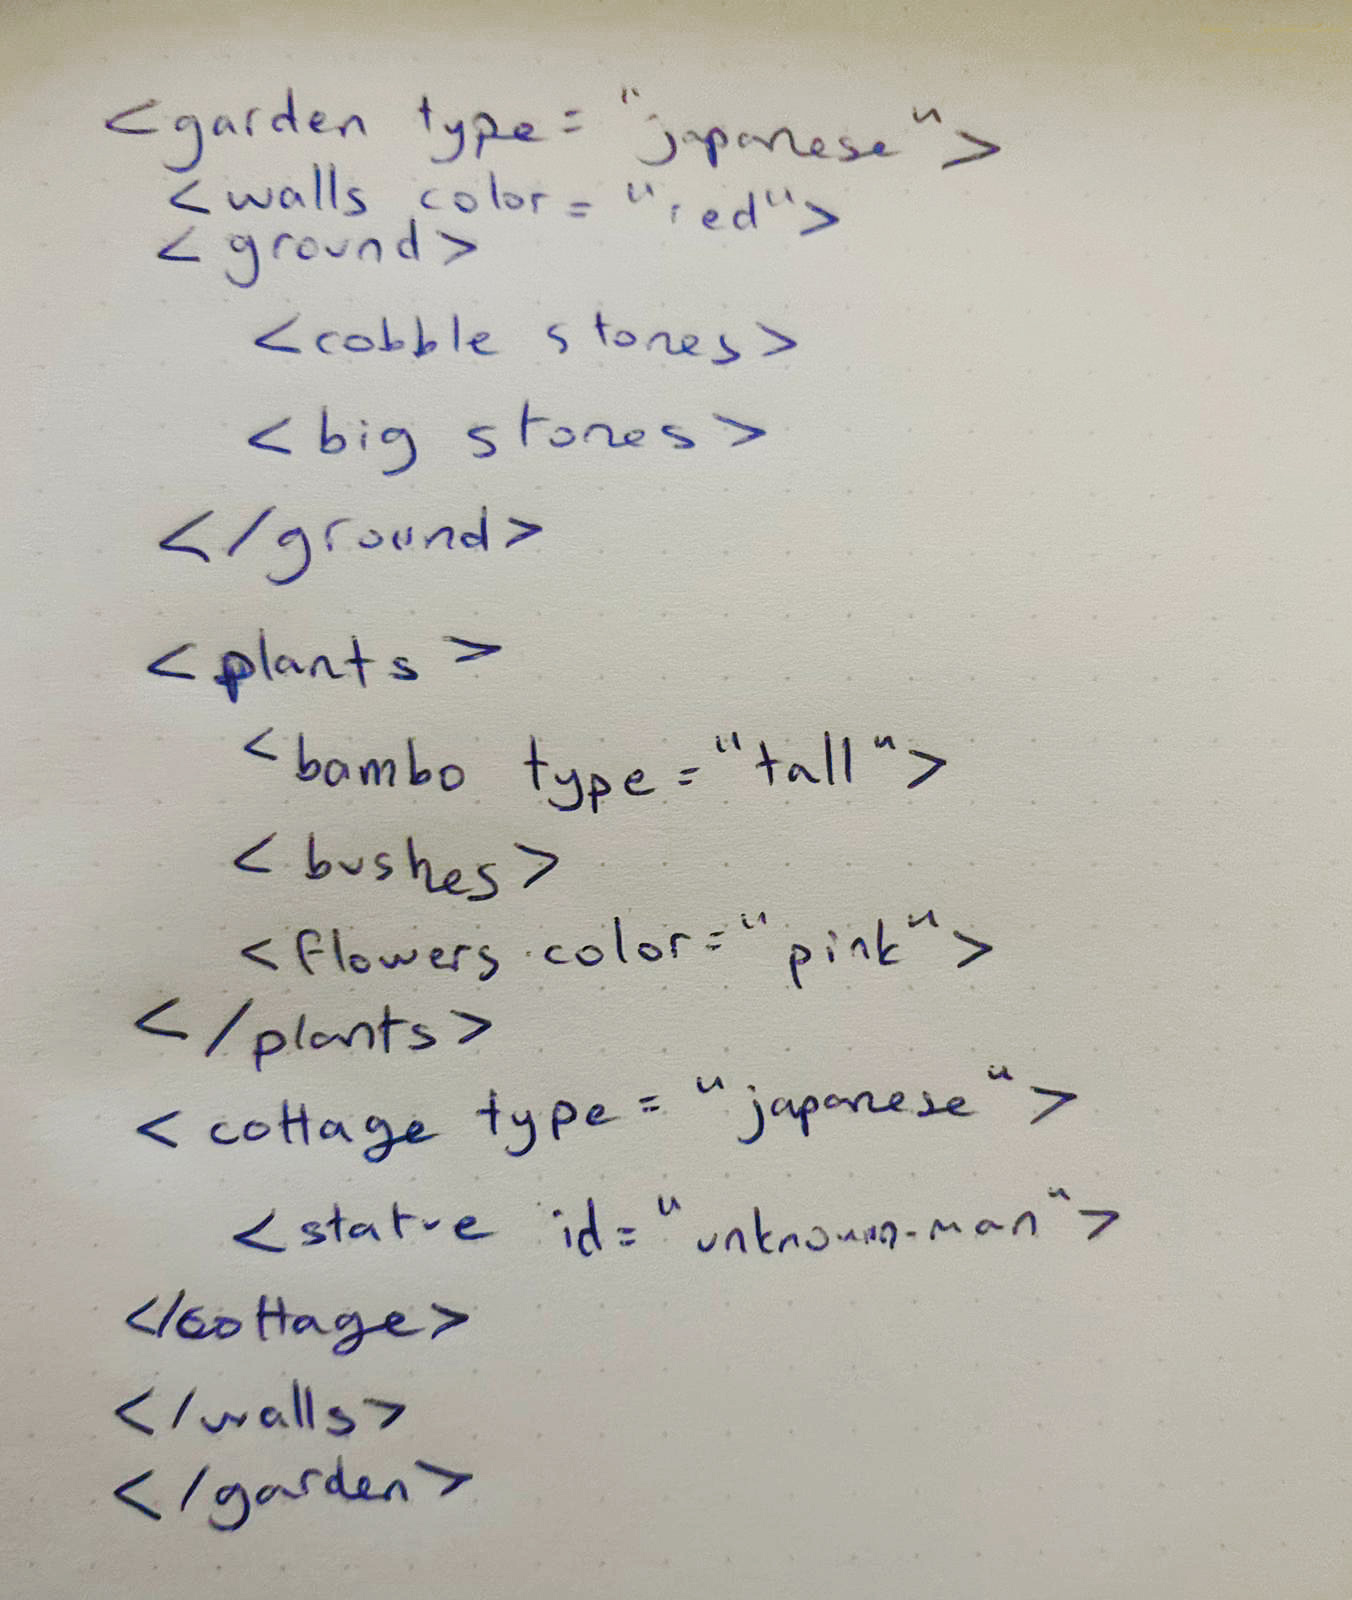 <garden type="japanese">
<walls color="red">
<ground>
<cobble stones>
<big stones>
</ground>
<plants>
<bambo type="tall">
<bushes>
<flowers color="pink">
</plants>
<cottage type="japanese">
<statue id="unknown-man">
</cottage>
</walls>
</garden>